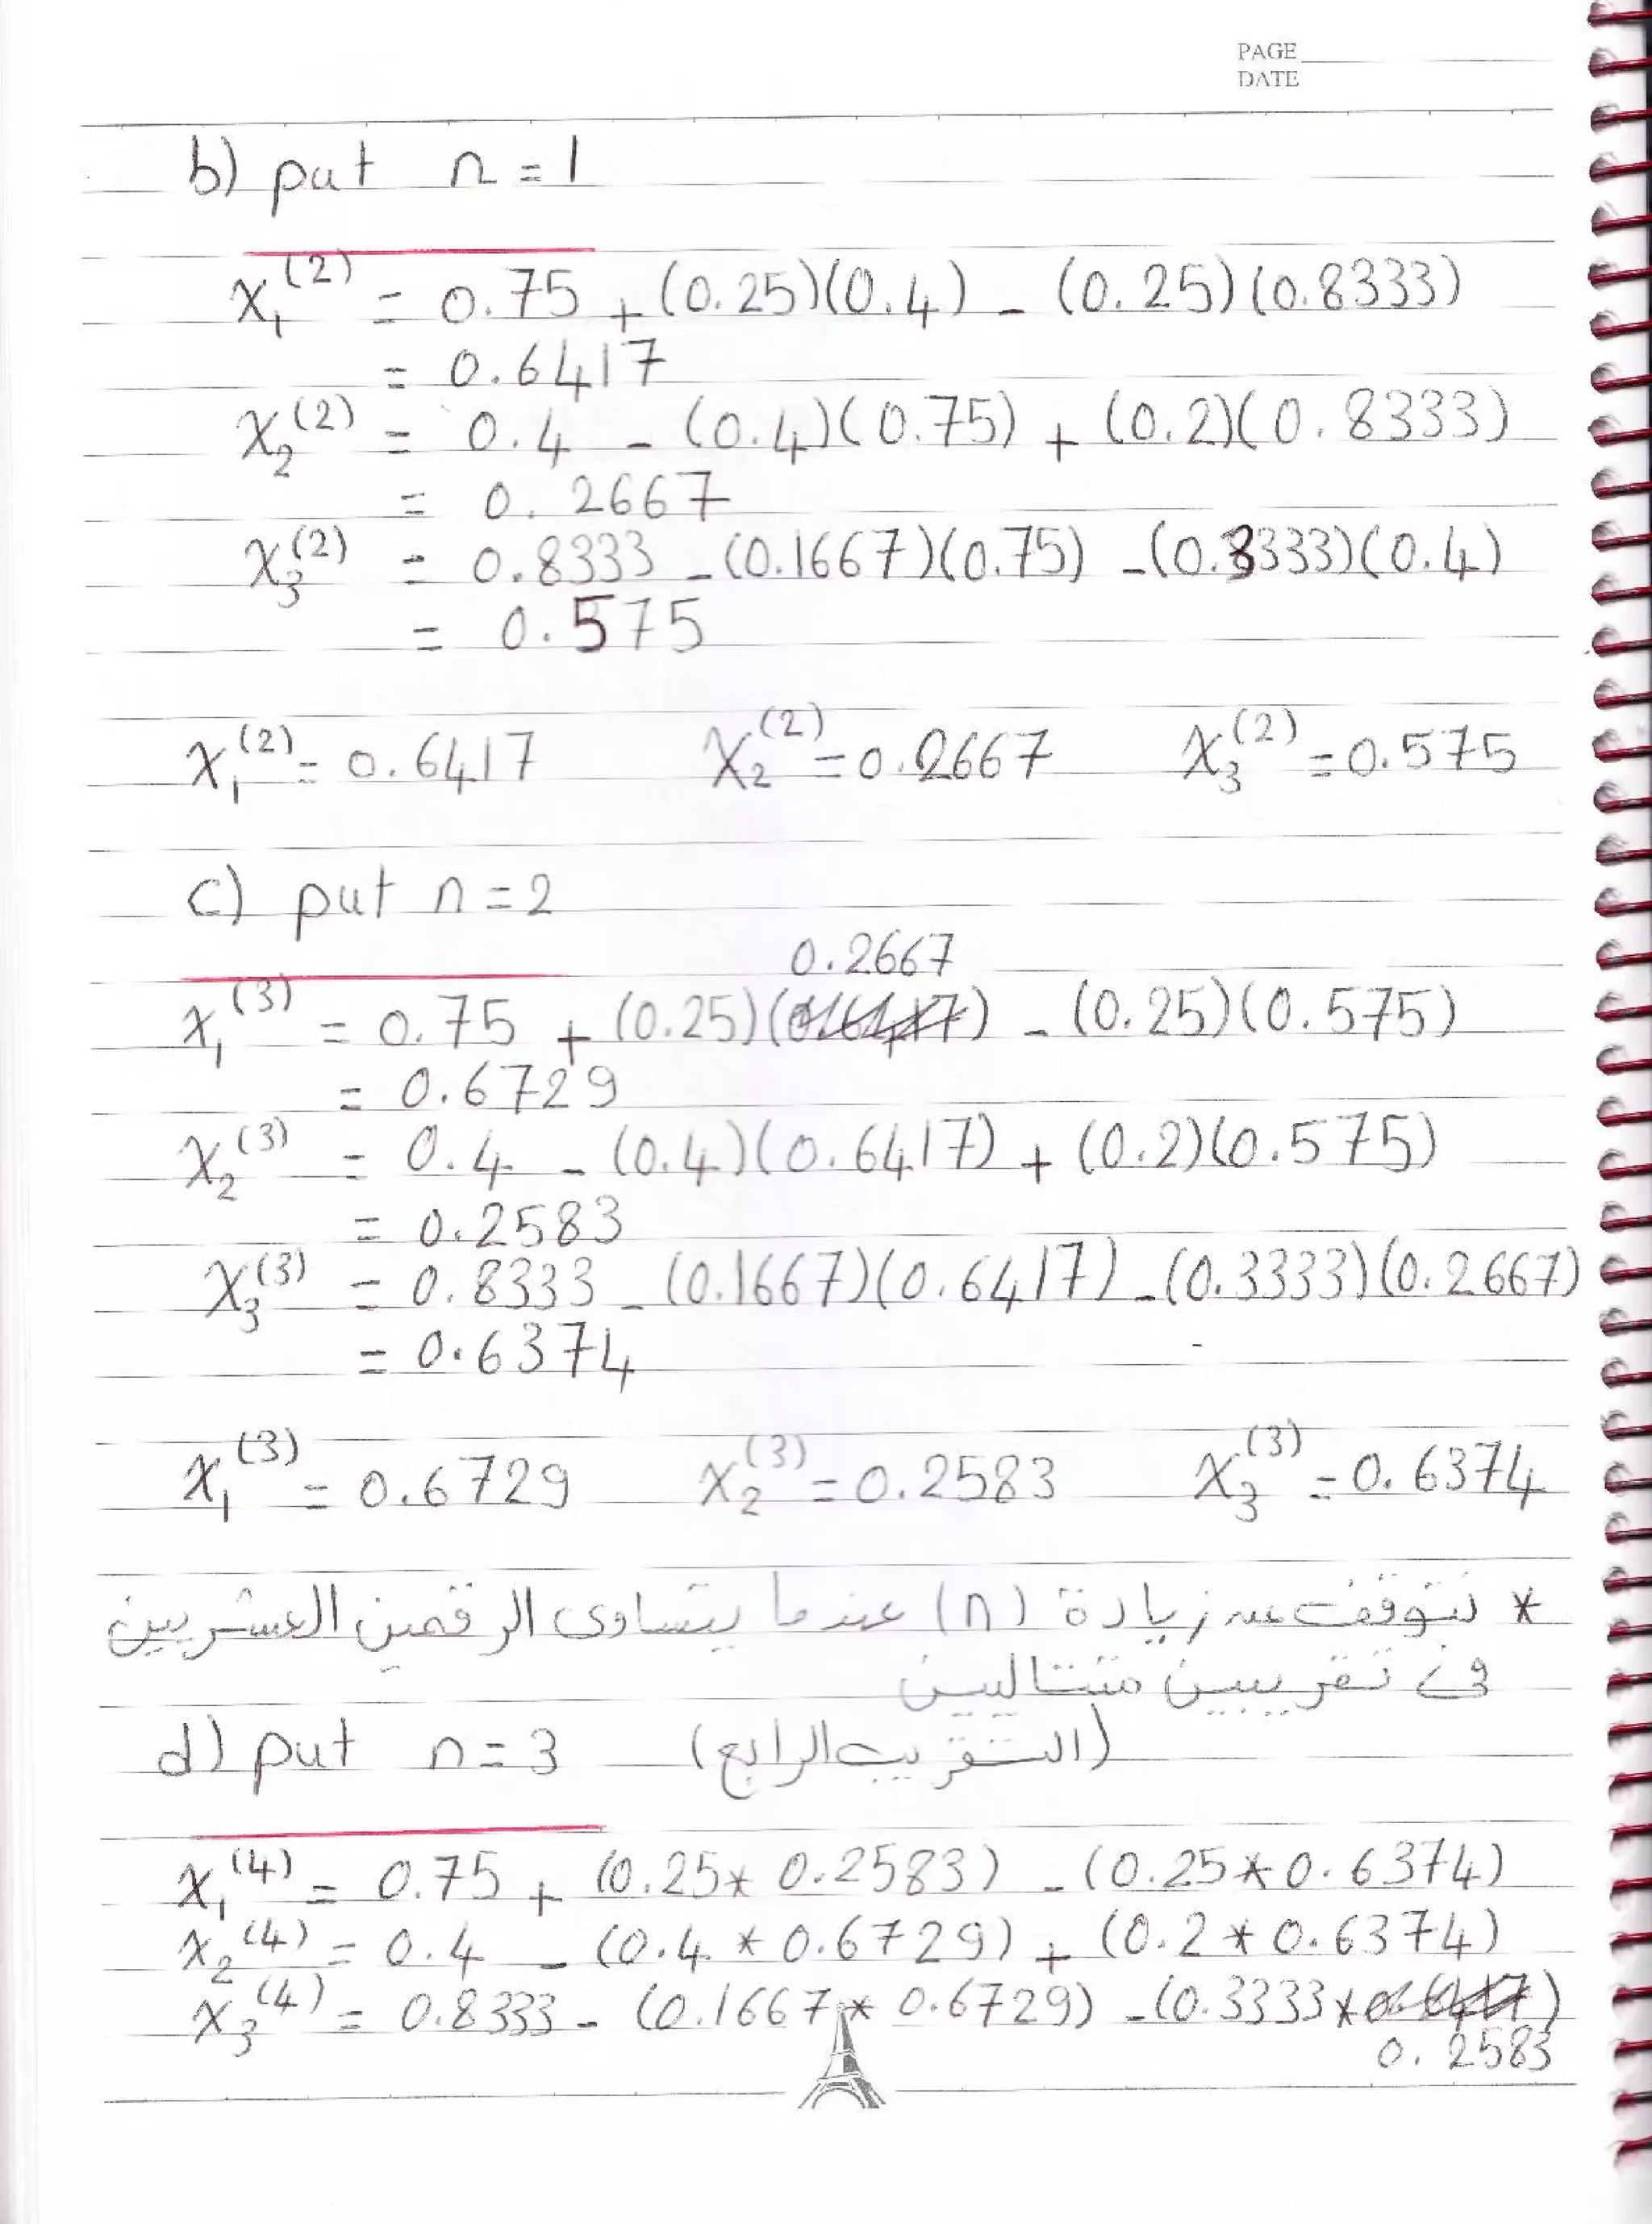 PAGE
DATE
b) put n = 1
x₁⁽²⁾ = 0.75 + (0.25)(0.4) - (0.25)(0.8333)
= 0.6417
x₂⁽²⁾ = 0.4 - (0.4)(0.75) + (0.2)(0.8333)
= 0.2667
x₃⁽²⁾ = 0.8333 - (0.1667)(0.75) - (0.3333)(0.4)
= 0.575
x₁⁽²⁾ = 0.6417 x₂⁽²⁾ = 0.2667 x₃⁽²⁾ = 0.575
c) put n = 2
0.2667
x₁⁽³⁾ = 0.75 + (0.25)( ) - (0.25)(0.575)
= 0.6729
x₂⁽³⁾ = 0.4 - (0.4)(0.6417) + (0.2)(0.575)
= 0.2583
x₃⁽³⁾ = 0.8333 - (0.1667)(0.6417) - (0.3333)(0.2667)
= 0.6374
x₁⁽³⁾ = 0.6729 x₂⁽³⁾ = 0.2583 x₃⁽³⁾ = 0.6374
* نتوقف عن زيادة (n) عندما يتساوى الرقمين العشريين
فى تقريبين متتاليين
d) put n = 3 (التقريب الرابع)
x₁⁽⁴⁾ = 0.75 + (0.25 * 0.2583) - (0.25 * 0.6374)
x₂⁽⁴⁾ = 0.4 - (0.4 * 0.6729) + (0.2 * 0.6374)
x₃⁽⁴⁾ = 0.8333 - (0.1667 * 0.6729) - (0.3333 * )
0.2583